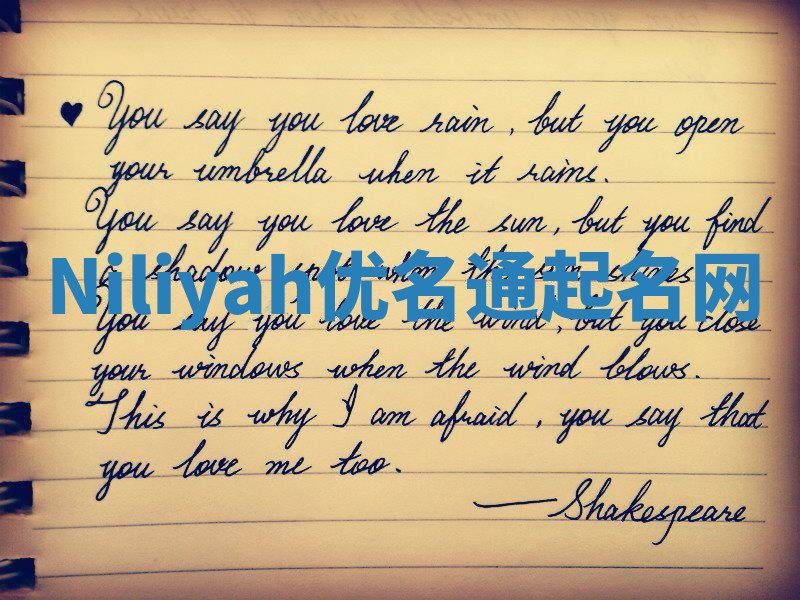 You say you love rain, but you open
your umbrella when it rains.
You say you love the sun, but you find
a shadow spot when the sun shines
Niliyah优名通起名网
You say you love the wind, but you close
your windows when the wind blows.
This is why I am afraid, you say that
you love me too.
—Shakespeare